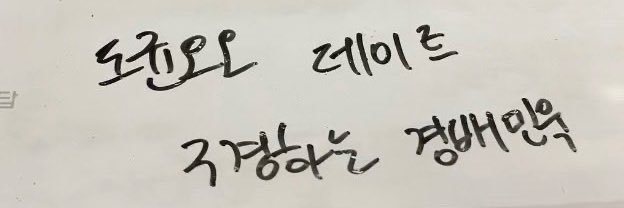 도쿄오오 데이트
구경하는 경배민욱
탑